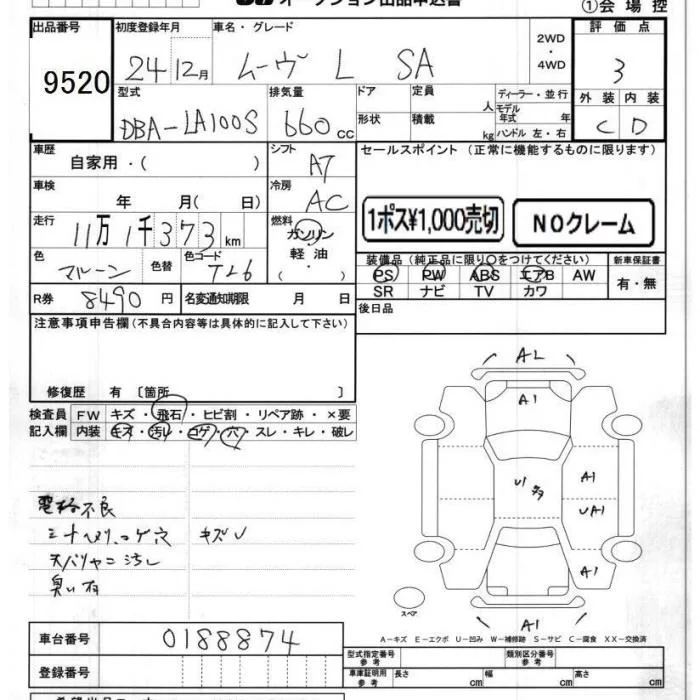 オークション出品申込書
①会場控
出品番号 初度登録年月 車名・グレード 2WD・4WD 評価点
9520 24 12月 ムーヴ L SA 3
型式 排気量 ドア 定員 人 ディーラー・並行 外装 内装
DBA-LA100S 660cc 形状 積載 kg モデル年式 年 ハンドル 左・右 C D
車歴 自家用・( ) シフト AT セールスポイント (正常に機能するものに限ります)
車検 年 月( 日) 冷房 AC
1ポス¥1,000売切 NOクレーム
走行 11万1千373km 燃料 ガソリン 軽油 ( ・ )
色 マルーン 色替 色コード T26
装備品(純正品に限り○をつけてください) 新車保証書
PS PW ABS エアB AW 有・無
SR ナビ TV カワ
R券 8490円 名変通知期限 月 日
後日品
注意事項申告欄(不具合内容等は具体的に記入して下さい)
修復歴 有〔箇所 〕
検査員 FW キズ・飛石・ヒビ割・リペア跡・×要
記入欄 内装 キズ・汚レ・コゲ・穴・スレ・キレ・破レ
電格不良
シート ヘタリ.コゲ穴 キズU
天バリヤニ汚レ
臭い有
AL
A1
U1 多
A1
UA1
A1
A1
スペア
A-キズ E-エクボ U-凹み W-補修跡 S-サビ C-腐食 XX-交換済
車台番号 0188874
型式指定番号 参考 類別区分番号 参考
登録番号
車庫証明用 参考 長さ cm 幅 cm 高さ cm